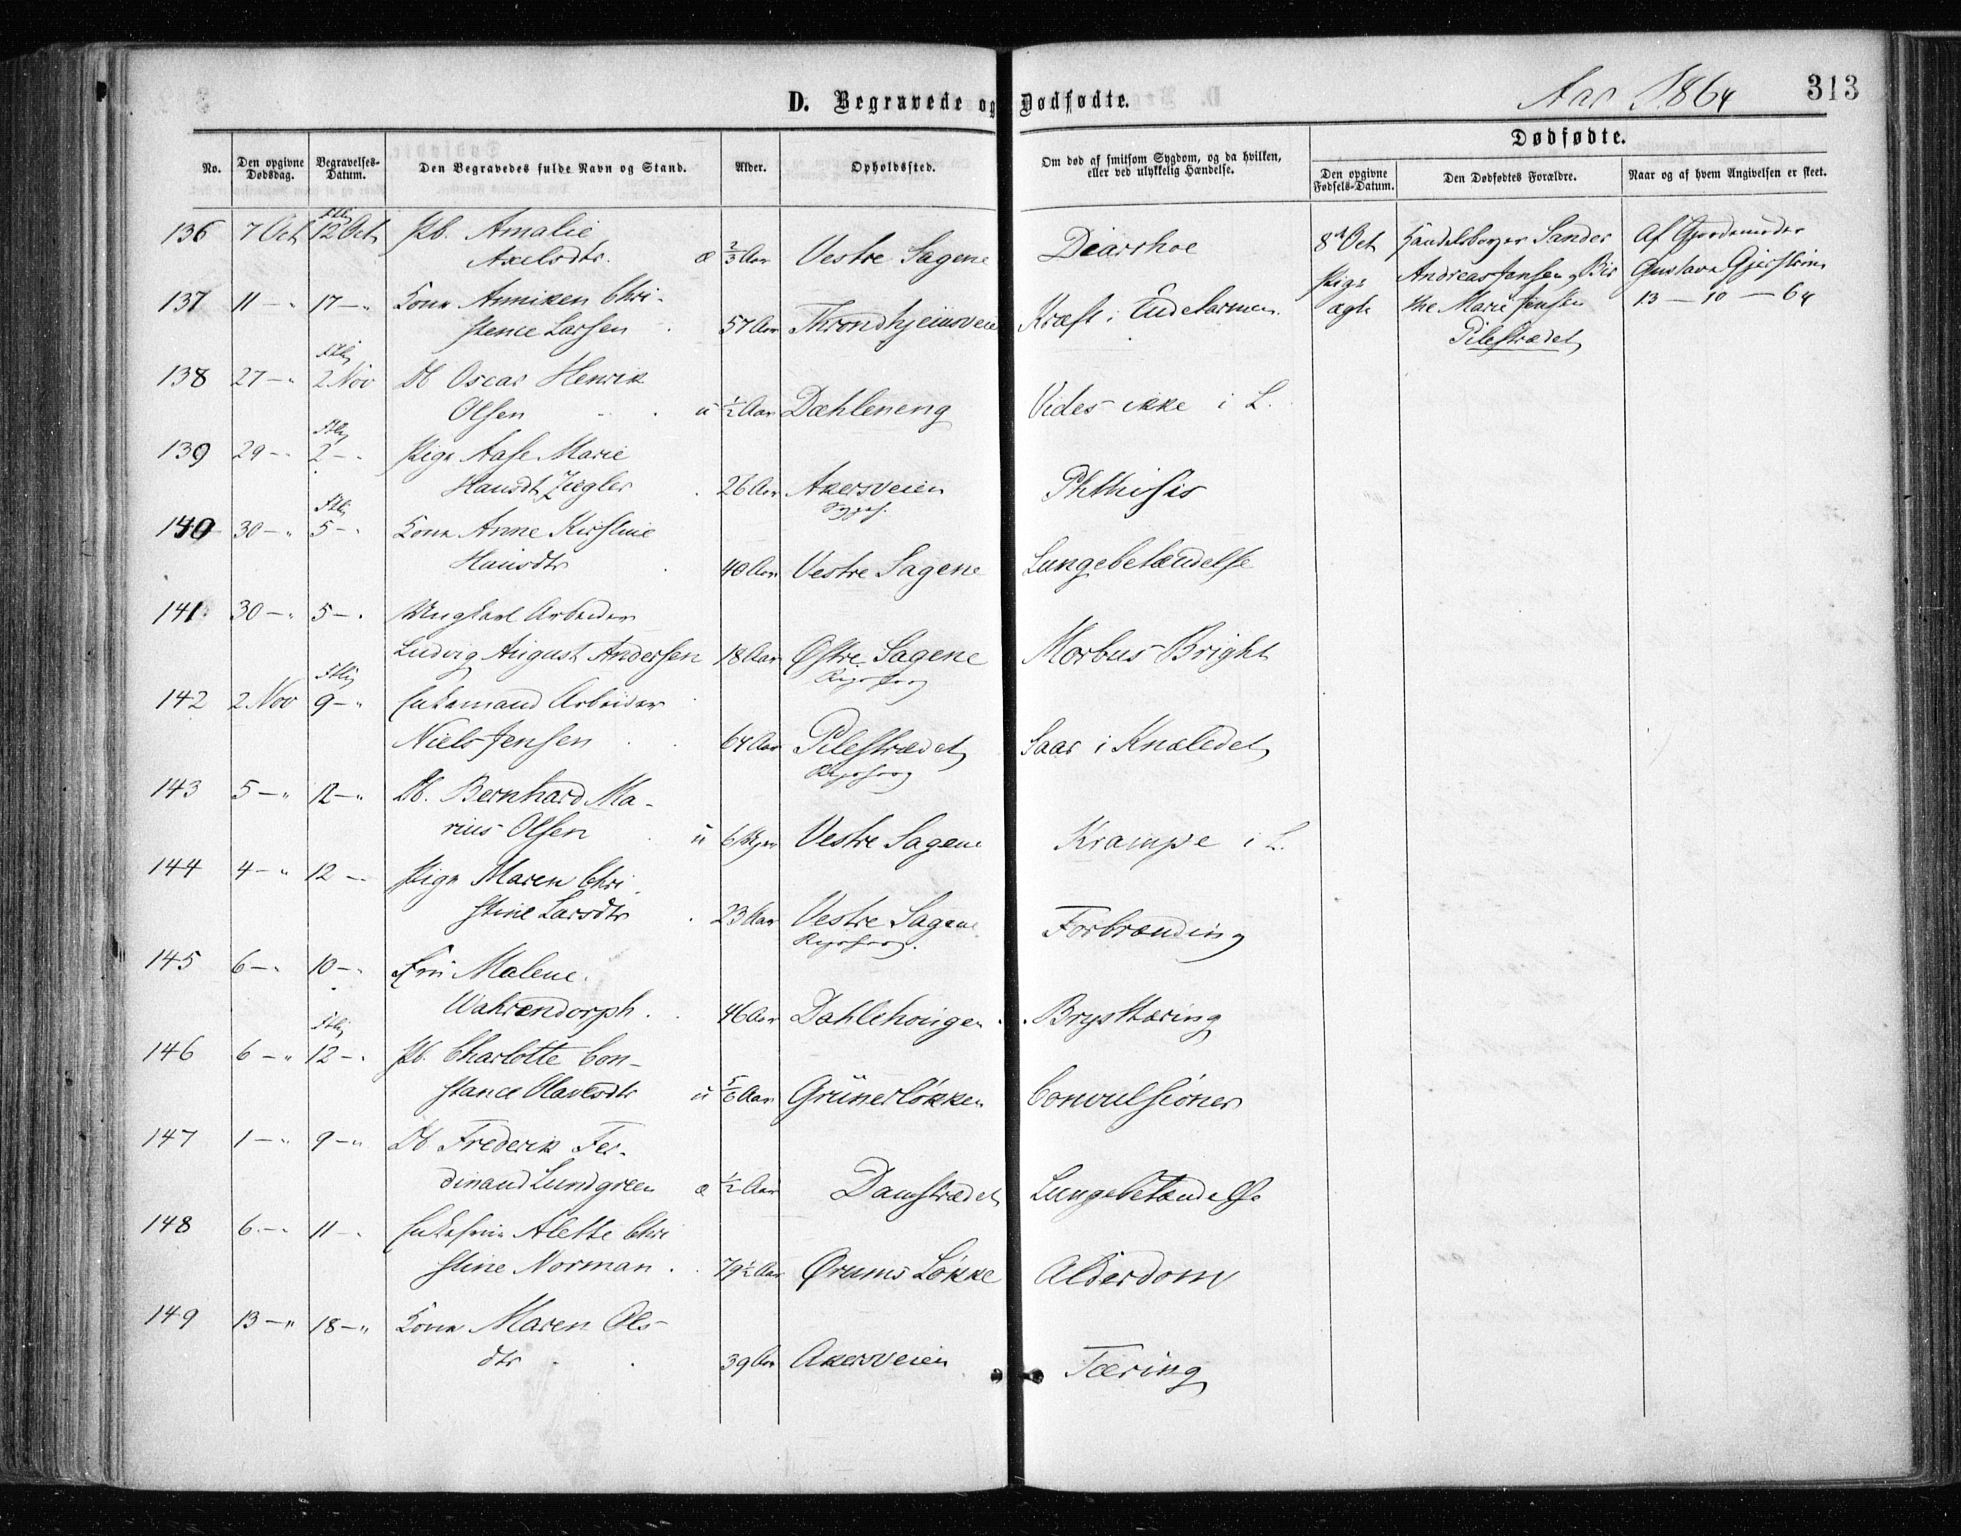 D. Begravede og Dødfødte.
Aar 1864
313
No.
Den opgivne Dødsdag.
Begravelses-Datum.
Den Begravedes fulde Navn og Stand.
Alder.
Opholdssted.
Om død af smitsom Sygdom, og da hvilken, eller ved ulykkelig Hændelse.
Dødfødte.
Den opgivne Fødsels-Datum.
Den Dødfødtes Forældre.
Naar og af hvem Angivelsen er skeet.
136 7 Oct 12 Oct Pb. Amalie
Axelsdtr. æ 2/3 Aar Vestre Sagene Diarrhoe
8de Oct Handelsborger Sander Af Gjordemoder
Pige Andreas Jensen, Bir Gustava
137 11 — " 17 — " Kone Anniken Chri-
stence Larsen 57 Aar Throndhjemsveien Kræft i Endetarmen
ægte the Marie Jensen 13 — 10 — 64
Pilestrædet
138 27 — " 2 Nov Db Oscar Henrik
Olsen u 1/2 Aar Dæhleneng Vides ikke i L.
139 29 — " 2 — " Pige Aase Marie
Hansdt Ziegler 26 Aar Akersveien Phthisis
140 30 — " 5 — " Kone Anne Kirstine
Hansdtr 40 Aar Vestre Sagene Lungebetændelse
141 30 — " 5 — " Ungkarl Arbeider
Ludvig August Andersen 18 Aar Østre Sagene Morbus Bright
142 2 Nov 9 — " Enkemand Arbeider
Niels Jensen 64 Aar Pilestrædet Saar i Knæledet
143 5 — " 12 — " Db. Bernhard Ma-
rius Olsen u 6 Vestre Sagene Krampe i L.
144 4 — " 12 — Pige Maren Chri
stine Larsdtr 23 Aar Vestre Sagene Forbrænding
145 6 — " 10 — " Fru Malene
Wahrendorph 46 Aar Dahlehougen Brysttæring
146 6 — " 12 — " Pb. Charlotte Con-
stance Olavesdtr u 5/6 Aar Grünerløkken Convulsioner
147 1 — " 9 — " Db Frederik Fer-
dinand Lundgreen æ 1/2 Aar Damstrædet Lungebetændelse
148 6 — " 11 — " Enkefrue Alette Chri
stine Norman 79 1/2 Aar Ørums Løkke Alderdom
149 13 — " 18 — " Kone Maren Ols-
dtr 39 Aar Akersveien Tæring